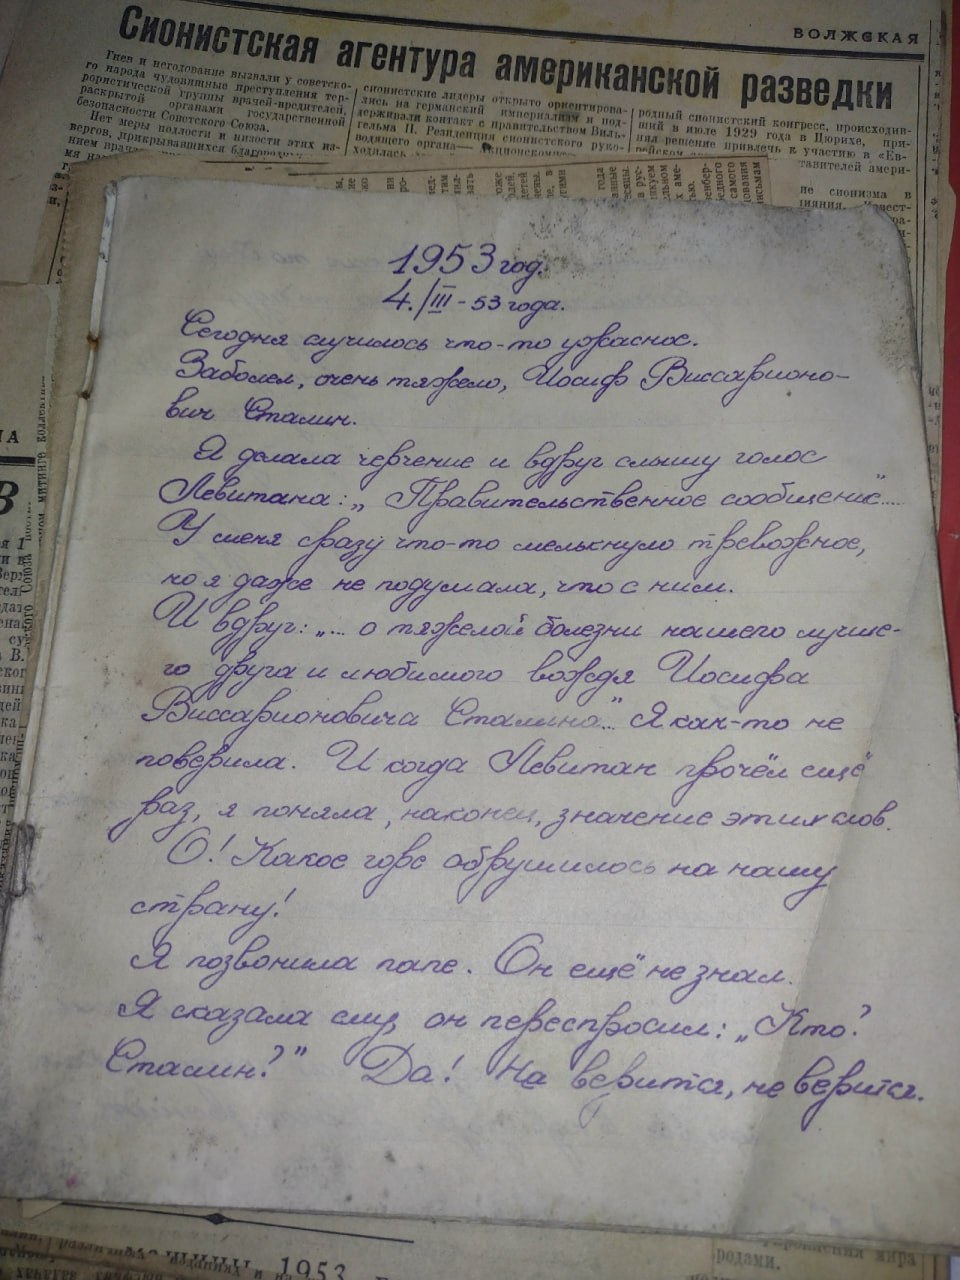 ВОЛЖСКАЯ
Сионистская агентура американской разведки
Гнев и негодование вызвали у советско-
го народа чудовищные преступления тер-
рористической группы врачей-вредителей,
раскрытой органами государственной
безопасности Советского Союза.
Нет меры подлости и низости этих из-
вергов, прикрывавшихся
сионистские лидеры открыто ориентирова-
лись на германский империализм и под-
держивали контакт с правительством Виль-
гельма II. Резиденция сионистского руко-
водящего органа—
родный сионистский конгресс, происходив-
ший в июле 1929 года в Цюрихе, при-
нял решение привлечь к участию в «Ев-
тавителей амери-
не сионизма в
1953 год.
4./III - 53 года.
Сегодня случилось что-то ужасное.
Заболел, очень тяжело, Иосиф Виссарионо-
вич Сталин.
Я делала черчение и вдруг слышу голос
Левитана: „Правительственное сообщение"....
У меня сразу что-то мелькнуло тревожное,
но я даже не подумала, что с ним.
И вдруг: „... о тяжелой болезни нашего лучше-
го друга и любимого вождя Иосифа
Виссарионовича Сталина..." Я как-то не
поверила. И когда Левитан прочёл ещё
раз, я поняла, наконец, значение этих слов.
О! Какое горе обрушилось на нашу
страну!
Я позвонила папе. Он ещё не знал.
Я сказала ему, он переспросил: „Кто?
Сталин?" Да! Не верится, не верится.
1953